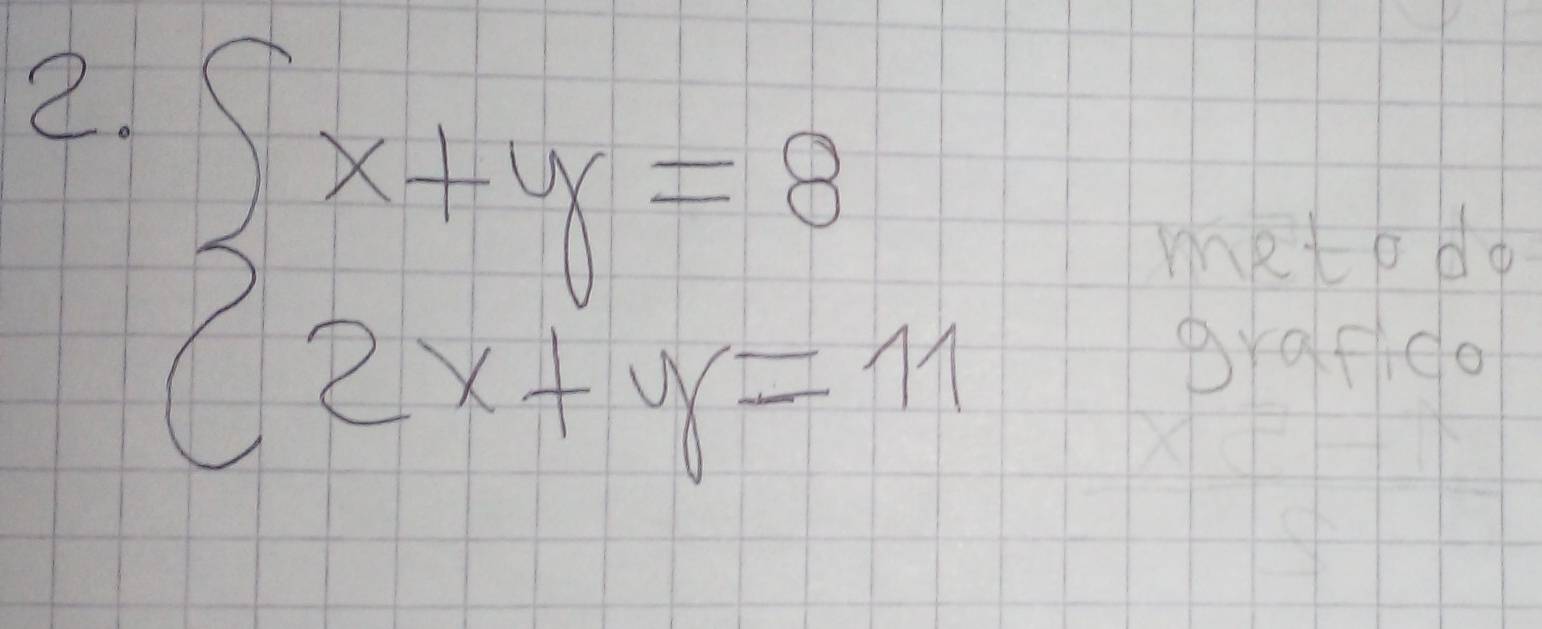 2.
x+y = 8
2x+y=11
metodo
grafico